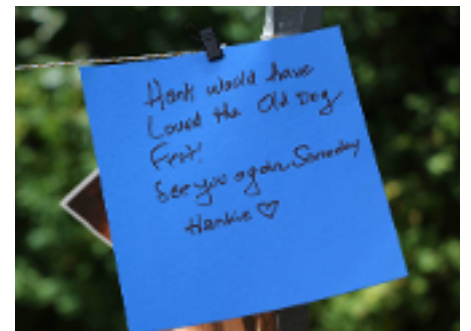 Hank would have
Loved the Old Dog
Fest!
See you again Someday
Hankie ♡